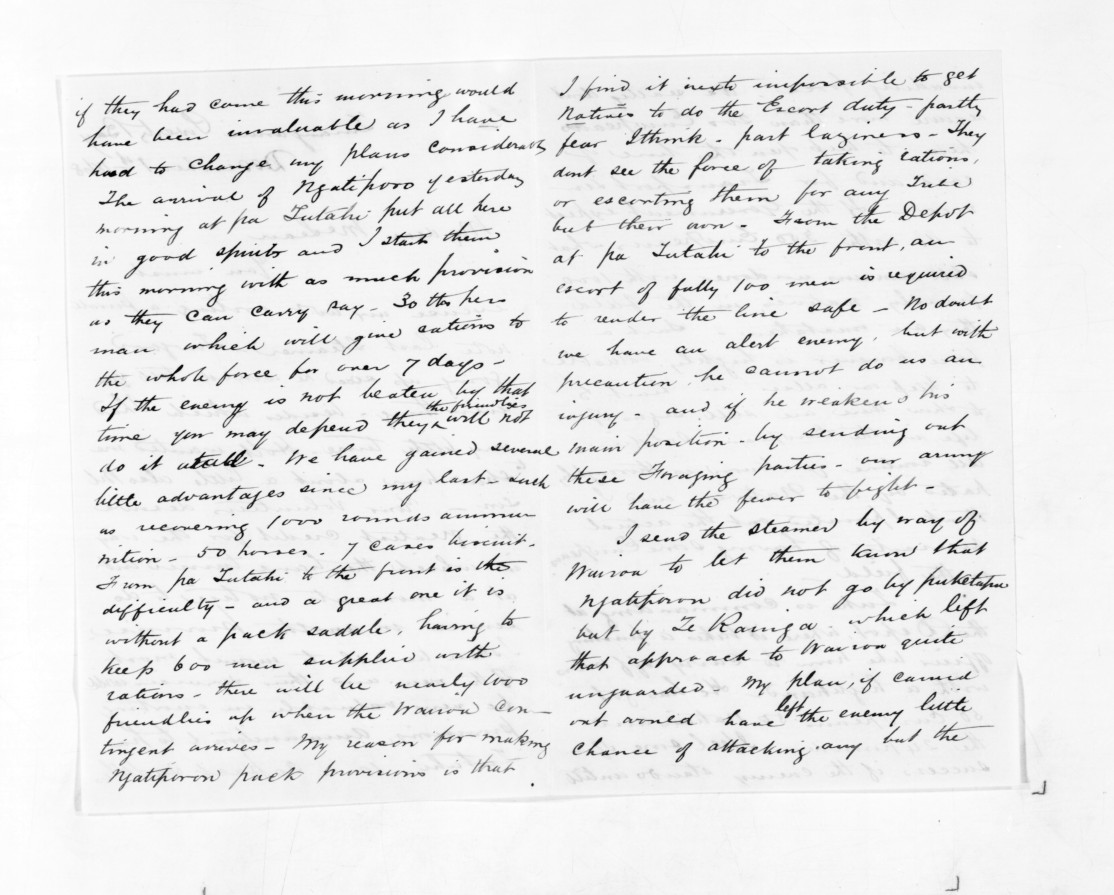 if they had come this morning would
have been invaluable as I have
had to change my plans considerably
The arrival of Ngatiporo yesterday
morning at pa Tutahi put all here
in good spirits and I start them
this morning with as much provision
as they can carry say - 30 lbs per
man which will give rations to
the whole force for over 7 days -
If the enemy is not beaten by that
time you may depend they the friendlies will not
do it atall. We have gained several
little advantages since my last - such
as recovering 1000 rounds ammu
nition - 50 horses. 7 cases biscuit.
From pa Tutahi to the front is the
difficulty - and a great one it is
without a pack saddle, having to
keep 600 men supplied with
rations - there will be nearly 1000
friendlies up when the Wairoa Con-
tingent arrives - My reason for making
Ngatiporou pack provisions is that
I find it next impossible to get
Natives to do the Escort duty - partly
fear I think - part laziness - They
dont see the force of taking rations,
or escorting them for any Tribe
but their own - From the Depot
at pa Tutahi to the front, an
escort of fully 100 men is required
to render the line safe - No doubt
we have an alert enemy, but with
precaution he cannot do us an
injury - and if he weakens his
main position by sending out
these Foraging parties - our army
will have the fewer to fight -
I send the steamer by way of
Wairoa to let them know that
Ngatiporou did not go by puketapu
but by Te Rainga which left
that approach to Wairoa quite
unguarded - My plan, if carried
out would have left the enemy little
chance of attacking any but the